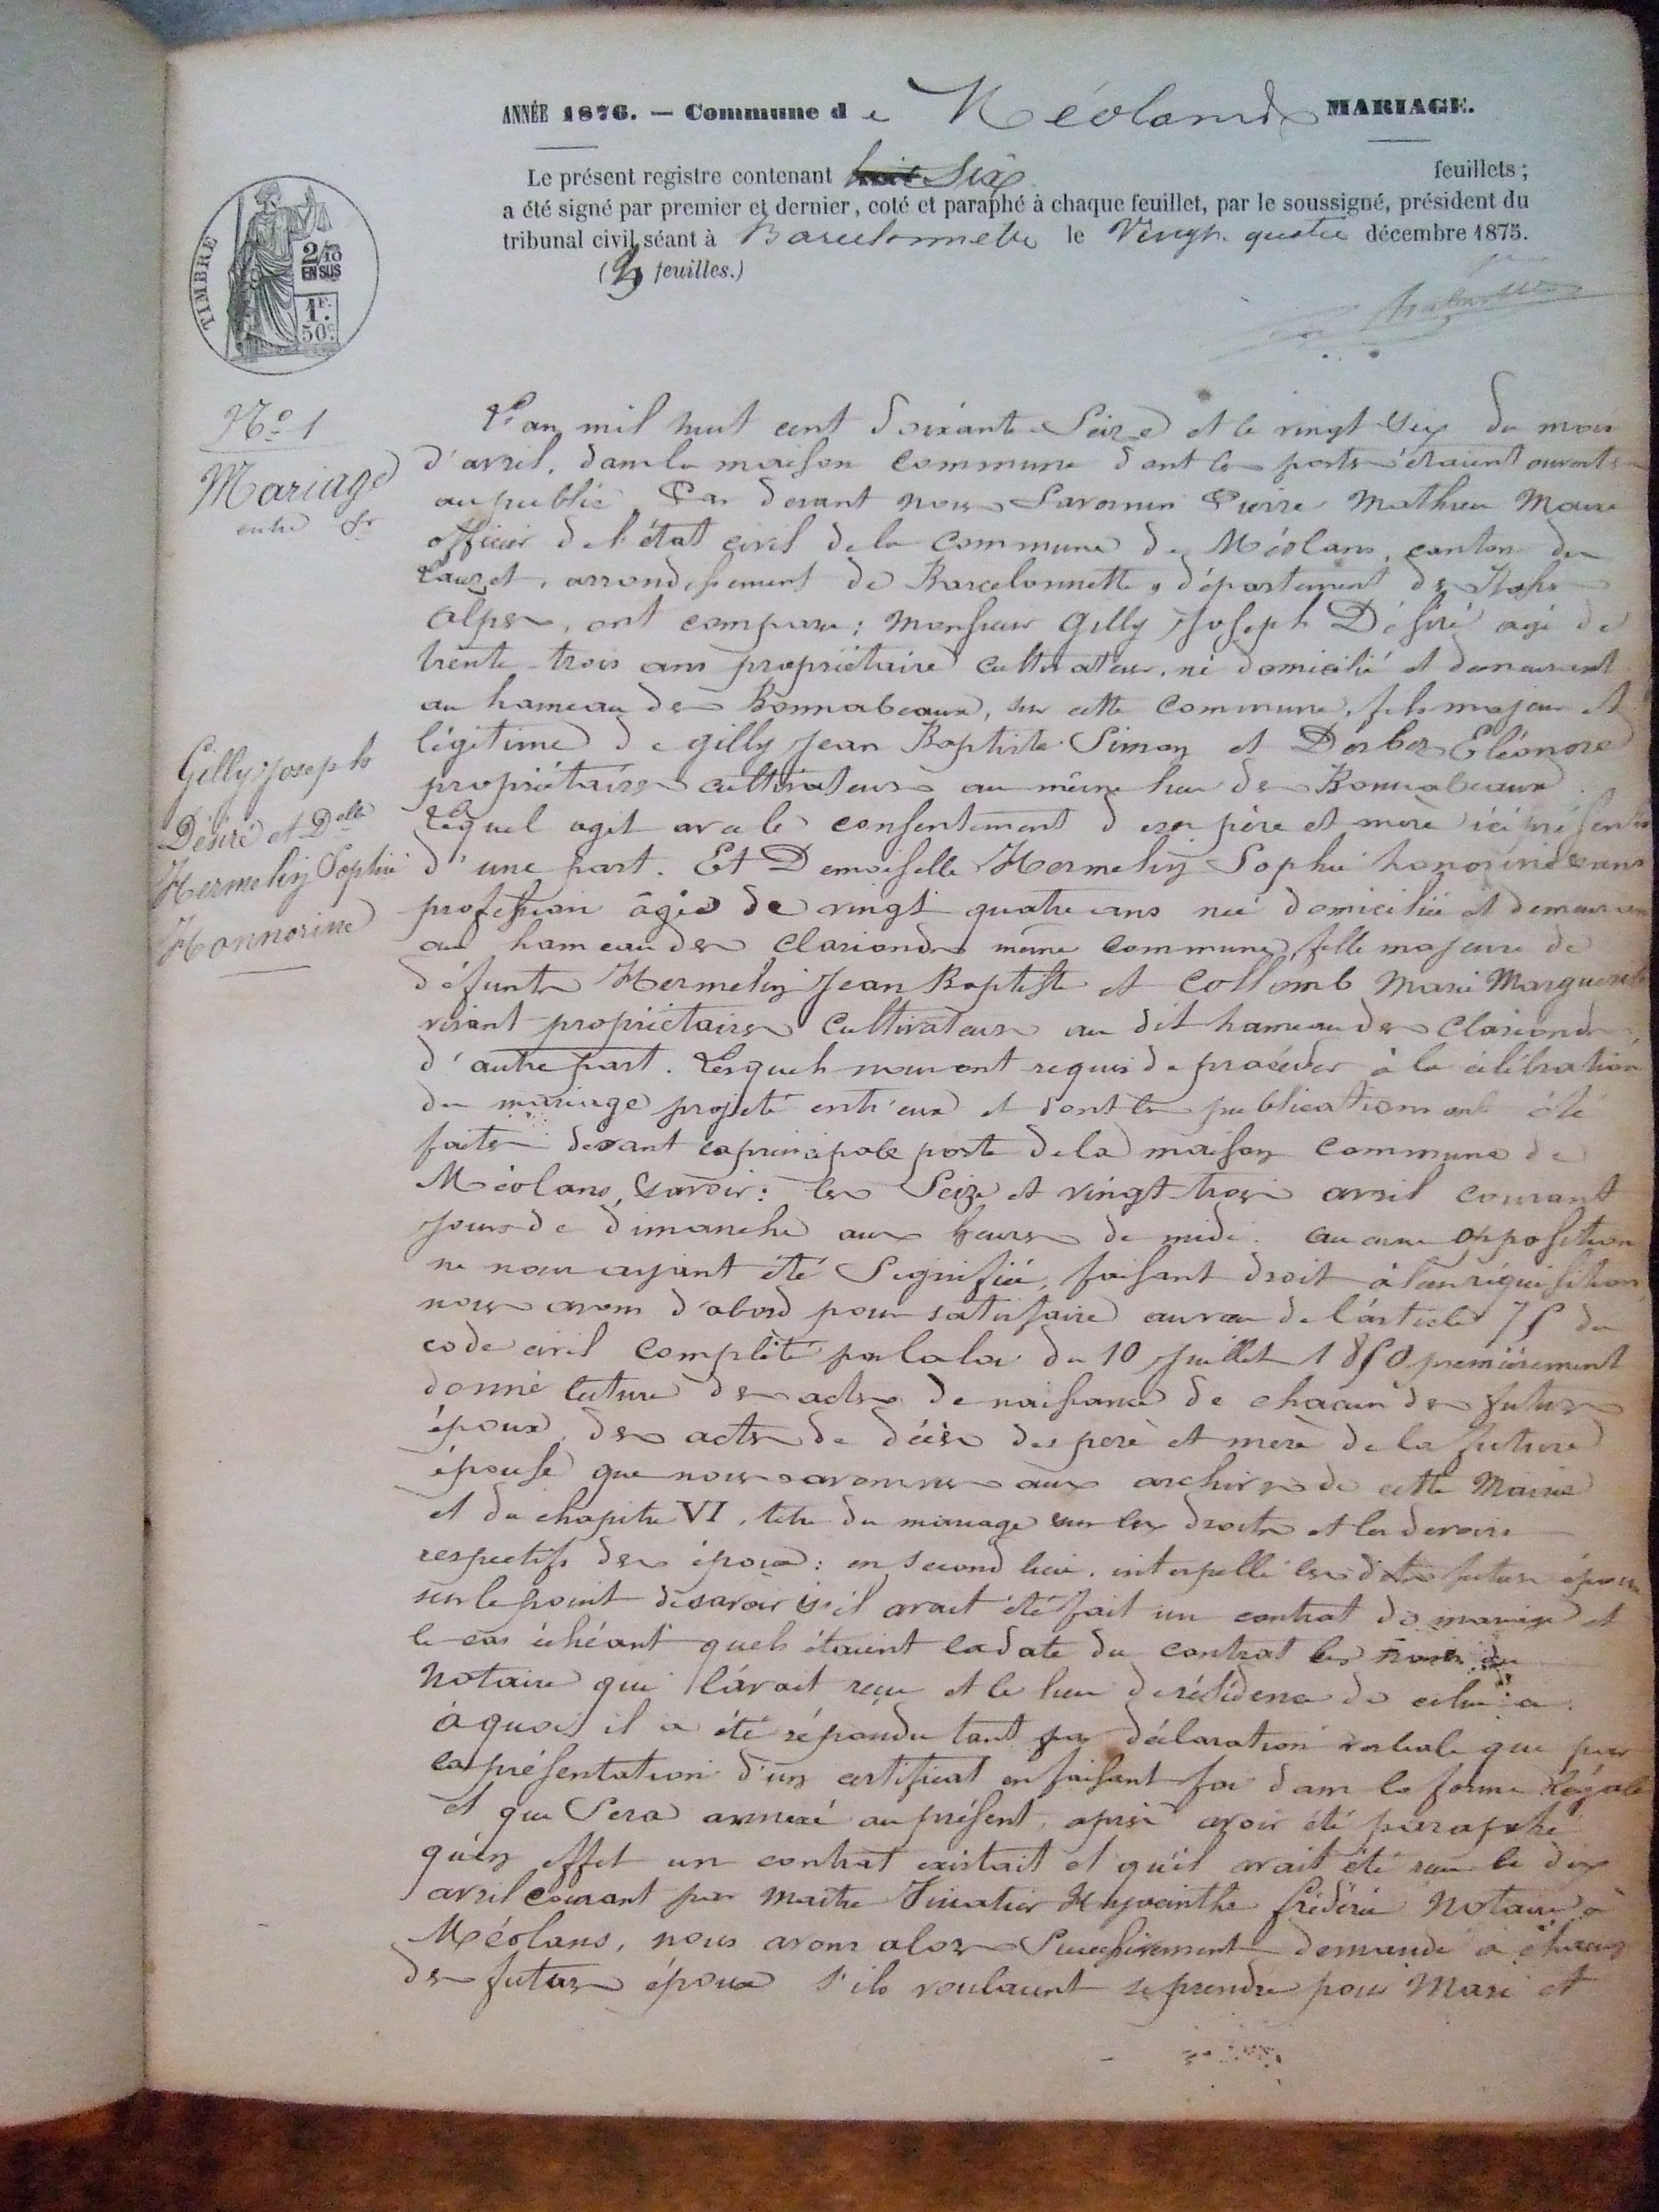 ANNÉE 1876. — Commune d e Méolans MARIAGE.
Le présent registre contenant huit Six feuillets ;
a été signé par premier et dernier, coté et paraphé à chaque feuillet, par le soussigné, président du
tribunal civil séant à Barcelonnette le Vingt quatre décembre 1875.
(3 feuilles.)
TIMBRE
2/10
EN SUS
1F.
50c.
N° 1
Mariage
entre Sr
Gilly Joseph
Désiré et Delle
Hermelin Sophie
Honnorine
L'an mil huit cent soixante Seize et le vingt Six du mois
d'avril, dans la maison commune dont les portes étaient ouvertes
au public. Par devant nous Savornin Pierre Mathieu Maire
officier de l'état civil de la commune de Méolans, canton du
Lauzet, arrondissement de Barcelonnette, département des Basses
Alpes, ont comparu : Monsieur Gilly Joseph Désiré agé de
trente-trois ans propriétaire cultivateur, né domicilié et demeurant
au hameau des Bonnabeaux, sur cette commune, fils majeur et
légitime de Gilly Jean Baptiste Simon et Derbez Eléonore
propriétaires cultivateurs au même lieu des Bonnabeaux
Lequel agit avec le consentement de ses père et mère ici présents
d'une part. Et Demoiselle Hermelin Sophie honorine sans
profession âgée de vingt quatre ans née domiciliée et demeurant
au hameau des Clarionds même commune, fille majeure de
défunts Hermelin Jean Baptiste et Collomb Marie Marguerite
vivant propriétaires cultivateurs au dit hameau des Clarionds
d'autre part. Lesquels nous ont requis de procéder à la célébration
du mariage projeté entr'eux et dont les publications ont été
faites devant la principale porte de la maison commune de
Méolans, savoir : les Seize et vingt trois avril courant
jours de dimanche aux heures de midi. aucune opposition
ne nous ayant été Signifiée, faisant droit à leur réquisition
nous avons d'abord pour satisfaire au vœu de l'article 75 du
code civil complété par la loi du 10 Juillet 1850 premièrement
donné lecture des actes de naissance de chacun des futurs
époux, des actes de décès des père et mère de la future
épouse que nous avons vus aux archives de cette Mairie
et du chapitre VI, titre du mariage sur les droits et les devoirs
respectifs des époux : en second lieu, interpellé les dits futurs époux
sur le point de savoir s'il avait été fait un contrat de mariage et
le cas échéant quels étaient la date du contrat les noms du
Notaire qui l'avait reçu et le lieu de résidence de celui-ci.
à quoi il a été répondu tant par déclaration verbale que par
la présentation d'un certificat en faisant foi dans la forme légale
et qui Sera annexé au présent, après avoir été paraphé
qu'en effet un contrat existait et qu'il avait été reçu le dix
avril courant par maitre Hyacinthe frédéric Notaire à
Méolans, nous avons alors Successivement demandé à chacun
des futurs époux s'ils voulaient se prendre pour Mari et